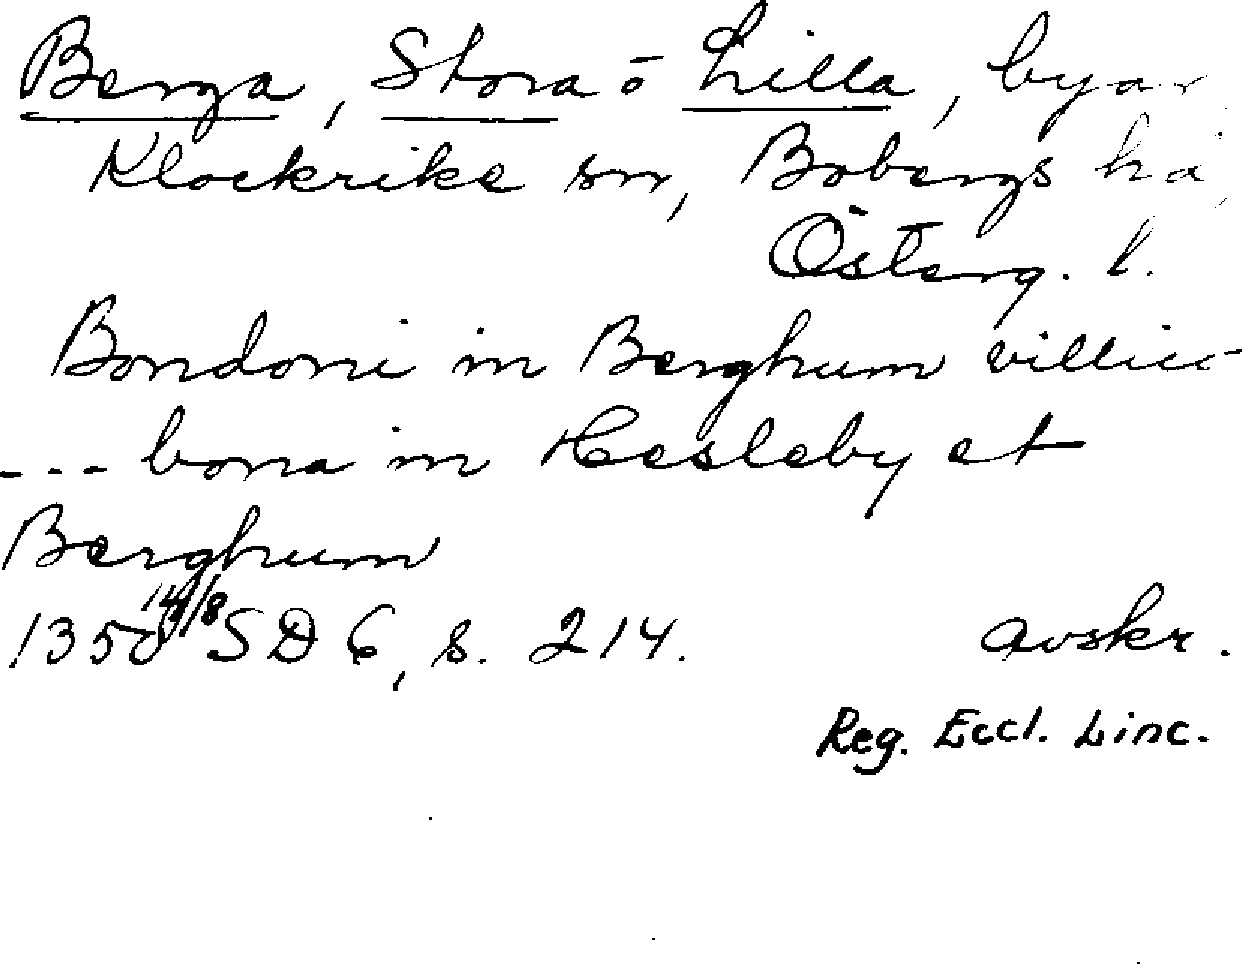 Berga, Stora o Lilla, byar
Klockrike sn, Bobergs hd,
Österg. l.
Bondoni in Berghum villico
--- bona in Hesleby et
Berghum
1350 14/8 SD 6, s. 214. avskr.
Reg. Eccl. Linc.